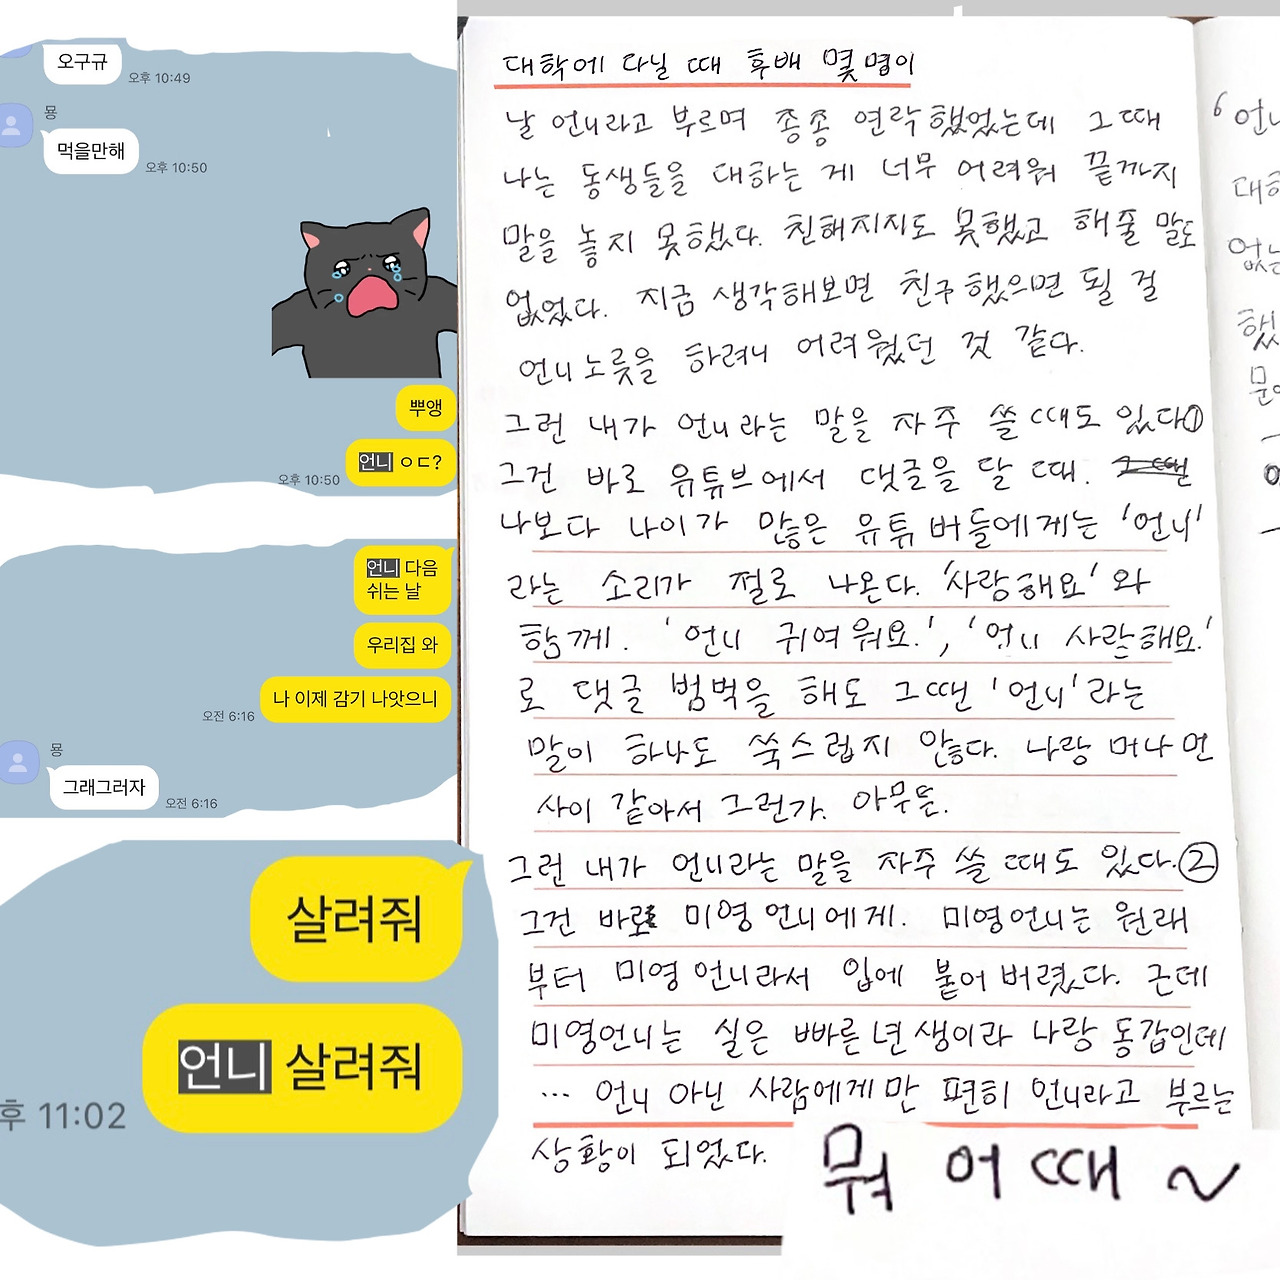 오구규
오후 10:49
묭
먹을만해
오후 10:50
뿌앵
언니 ㅇㄷ?
오후 10:50
언니 다음
쉬는 날
우리집 와
나 이제 감기 나앗으니
오전 6:16
묭
그래그러자
오전 6:16
살려줘
언니 살려줘
후 11:02
대학에 다닐 때 후배 몇명이
날 언니라고 부르며 종종 연락했었는데 그때
나는 동생들을 대하는 게 너무 어려워 끝까지
말을 놓지 못했다. 친해지지도 못했고 해줄 말도
없었다. 지금 생각해보면 친구했으면 될 걸
언니노릇을 하려니 어려웠던 것 같다.
그런 내가 언니라는 말을 자주 쓸 때도 있다①
그건 바로 유튜브에서 댓글을 달 때.
나보다 나이가 많은 유튜버들에게는 '언니'
라는 소리가 절로 나온다. '사랑해요'와
함께. '언니 귀여워요.', '언니 사랑해요.'
로 댓글 범벅을 해도 그땐 '언니'라는
말이 하나도 쑥스럽지 않다. 나랑 머나먼
사이 같아서 그런가. 아무튼.
그런 내가 언니라는 말을 자주 쓸 때도 있다.②
그건 바로 미영언니에게. 미영언니는 원래
부터 미영언니라서 입에 붙어버렸다. 근데
미영언니는 실은 빠른년생이라 나랑 동갑인데
... 언니 아닌 사람에게만 편히 언니라고 부르는
상황이 되었다.
뭐 어때 ~
6 언니
대하
없는
했